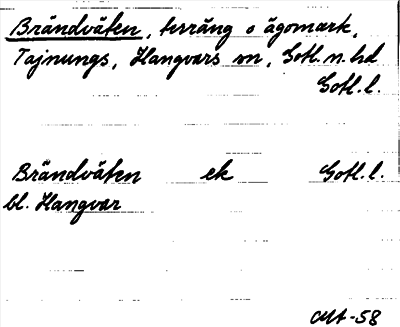 Brändväten, terräng o ägomark,
Tajnungs, Hangvars sn, Gotl. n. hd
Gotl. l.
Brändväten ek Gotl. l.
bl. Hangvar
-58